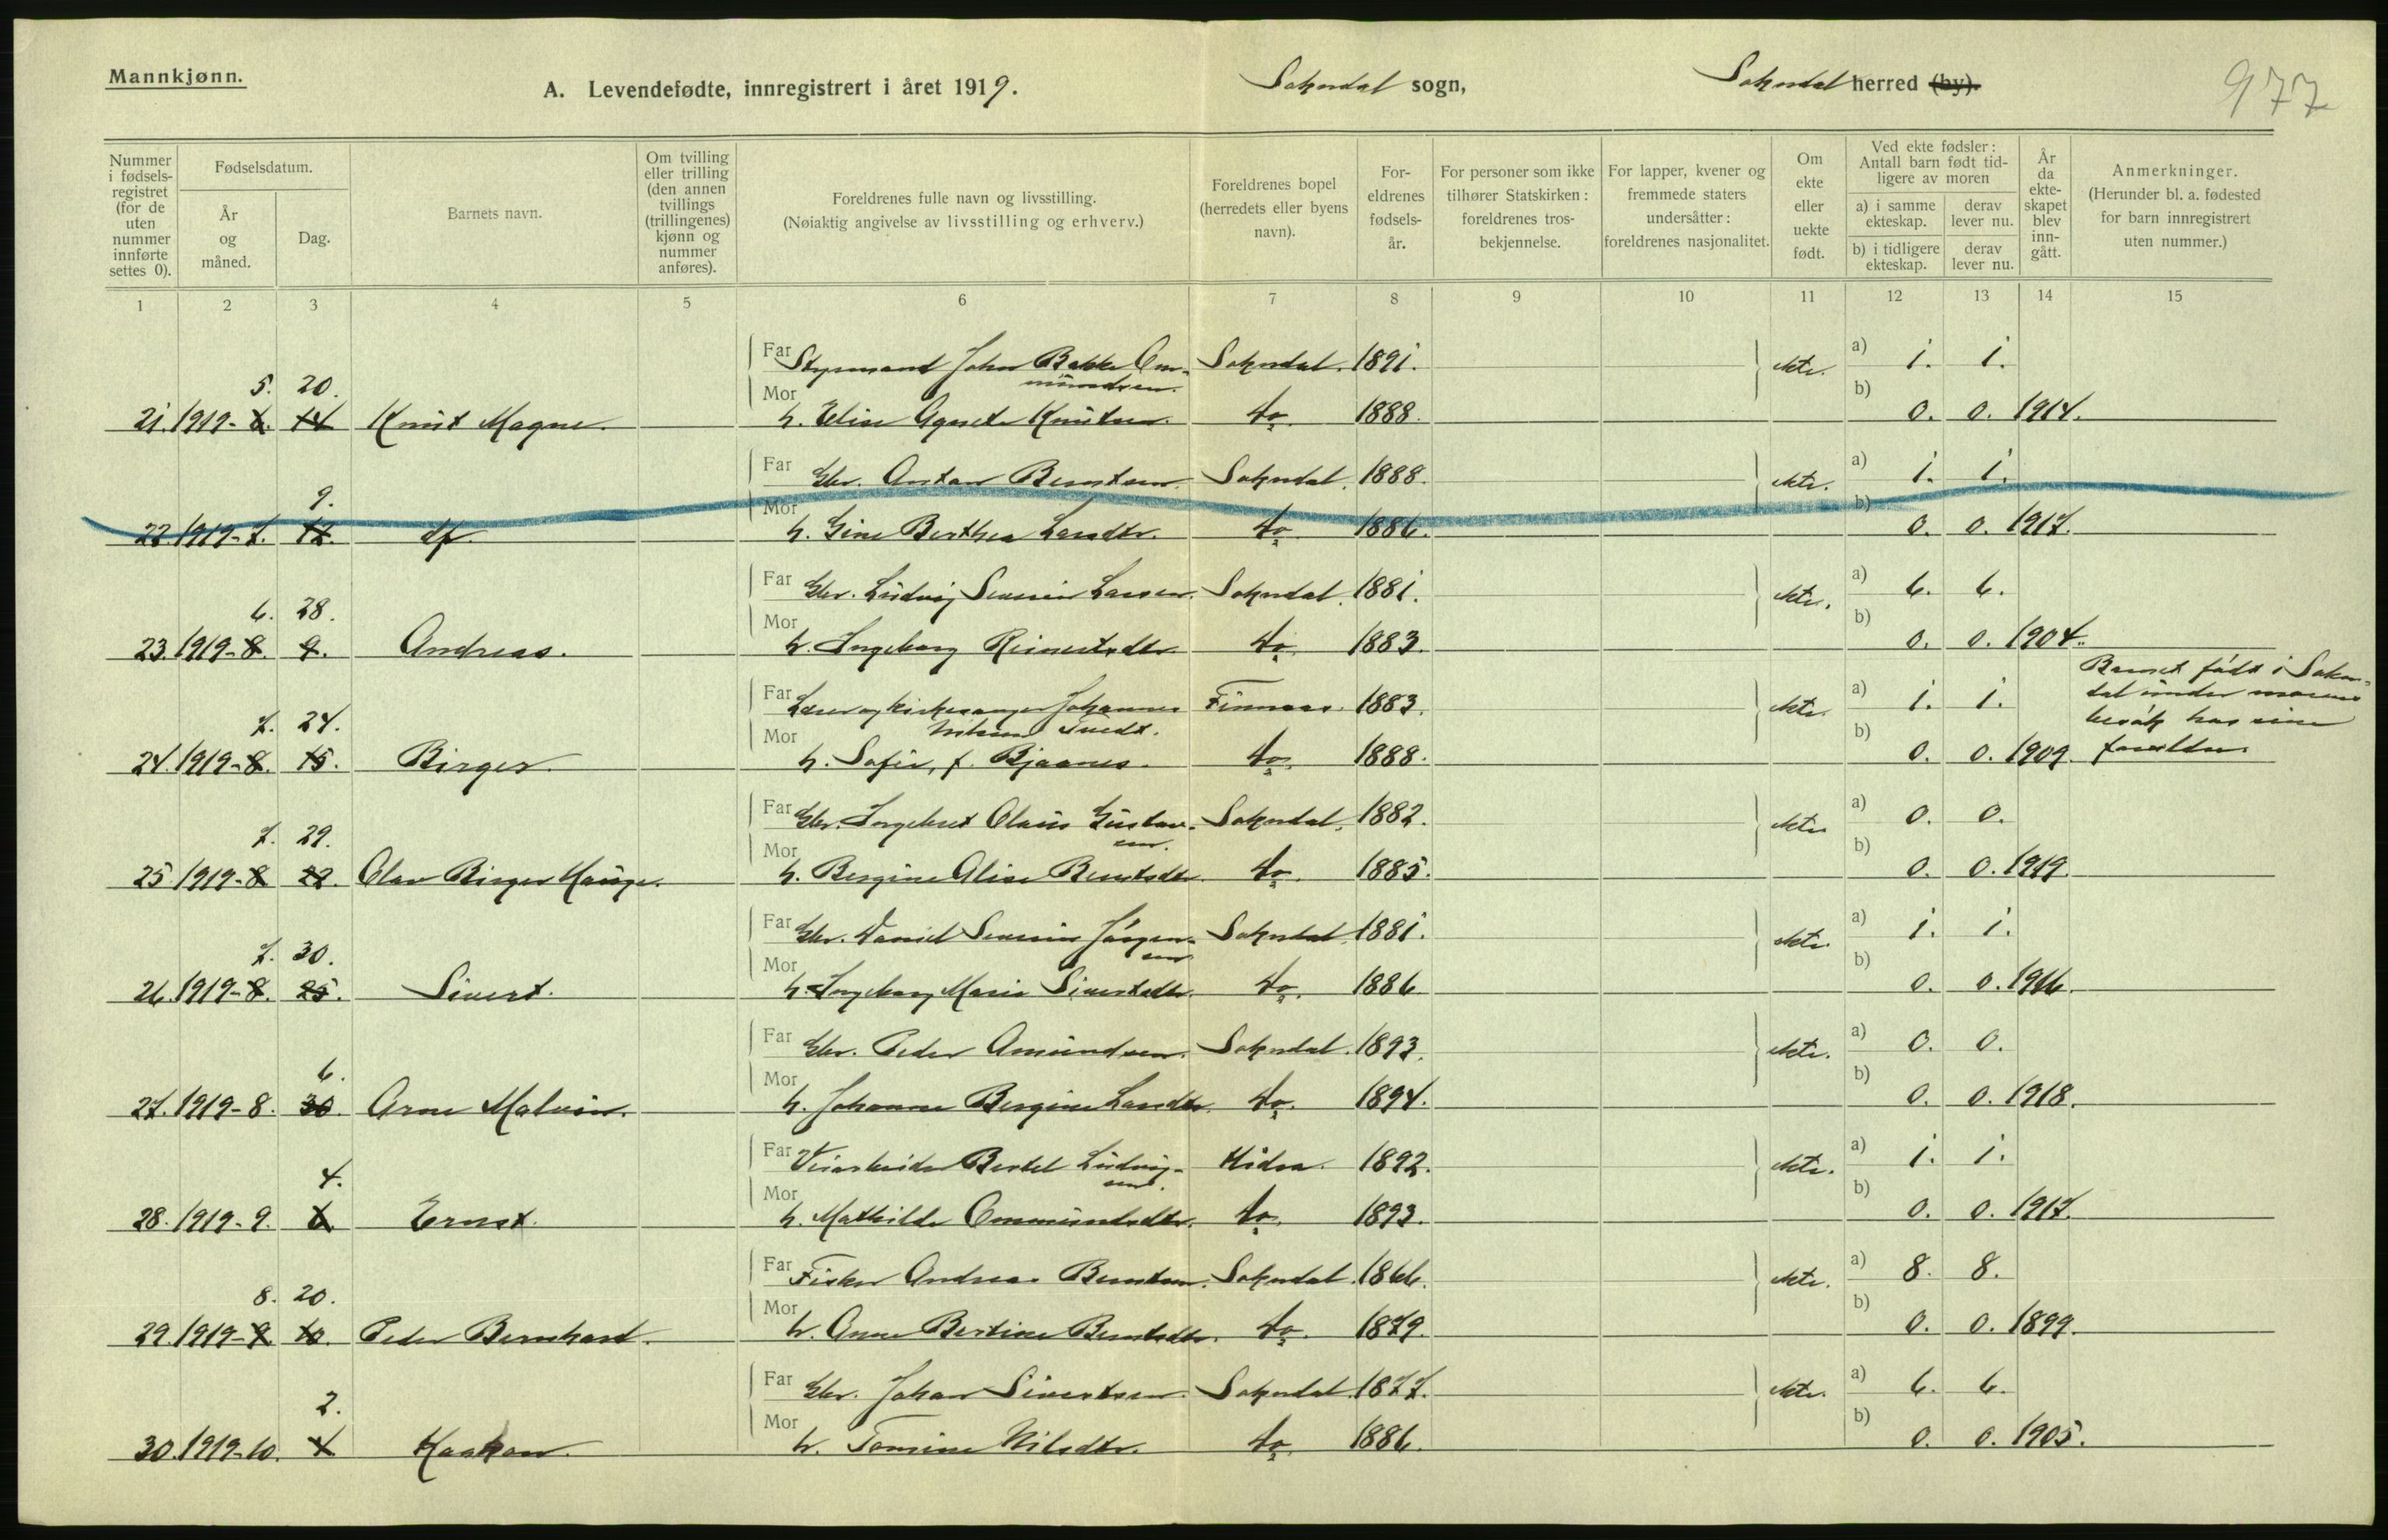 Mannkjønn.
A. Levendefødte, innregistrert i året 1919.
Sokndal sogn,
Sokndal herred (by).
977
Nummer i fødselsregistret (for de uten nummer innførte settes 0).
Fødselsdatum.
År og måned.
Dag.
Barnets navn.
Om tvilling eller trilling (den annen tvillings (trillingenes) kjønn og nummer anføres).
Foreldrenes fulle navn og livsstilling.
(Nøiaktig angivelse av livsstilling og erhverv.)
Foreldrenes bopel (herredets eller byens navn).
Foreldrenes fødselsår.
For personer som ikke tilhører Statskirken: foreldrenes trosbekjennelse.
For lapper, kvener og fremmede staters undersåtter: foreldrenes nasjonalitet.
Om ekte eller uekte født.
Ved ekte fødsler: Antall barn født tidligere av moren
a) i samme ekteskap.
derav lever nu.
b) i tidligere ekteskap.
derav lever nu.
År da ekteskapet blev inngått.
Anmerkninger.
(Herunder bl. a. fødested for barn innregistrert uten nummer.)
1 2 3 4 5 6 7 8 9 10 11 12 13 14 15
Far Styrmand John Bakke Ommundsen. Sokndal. 1891. ekte. a) 1. 1.
5. 20.
21. 1919-8. 14 Knut Magne. Mor h. Elise Agnete Knutsen. do. 1888. b) 0. 0. 1914.
Far Gbr. Anton Berntsen. Sokndal. 1888. ekte. a) 1. 1.
9.
22. 1919-7. 12. df. Mor h. Gine Berthea Larsdtr. do. 1886. b) 0. 0. 1917.
Far Gbr. Ludvig Severin Larsen. Sokndal. 1881. ekte. a) 6. 6.
6. 28.
23. 1919-8. 9. Andreas. Mor h. Ingeborg Reinertsdtr. do. 1883. b) 0. 0. 1904.
Far Lærer og kirkesanger Johannes Nilsen Tuedt. Finnaas. 1883. ekte. a) 1. 1. Barnet født i Sokndal under morens besøk hos sine forældre.
7. 24.
24. 1919-8. 15. Birger. Mor h. Sofie, f. Bjaanes. do. 1888. b) 0. 0. 1909.
Far Gbr. Ingebret Olaus Gustavsen. Sokndal. 1882. ekte a) 0. 0.
7. 29.
25 1919-8 22. Olav Birger Hauge. Mor h. Bergine Alise Berntsdtr. do. 1885. b) 0. 0. 1919.
Far Gbr. Daniel Severin Jørgensen Sokndal 1881. ekte. a) 1. 1.
7. 30.
26. 1919-8. 25. Sivert. Mor h. Ingeborg Marie Sivertsdtr. do. 1886 b) 0. 0. 1916.
Far Gbr. Peder Amundsen. Sokndal. 1893. ekte. a) 0. 0.
6.
27. 1919-8. 30. Arne Malvin. Mor h. Johanne Bergine Larsdtr. do. 1894. b) 0. 0. 1918.
Far Bertel Ludvigsen. Hidra. 1892. ekte. a) 1. 1.
4.
28. 1919-9. 6 Ernst. Mor h. Mathilde Ommundsdtr. do. 1893. b) 0. 0. 1917.
Far Fisker Andreas Berntsen. Sokndal. 1866. ekte. a) 8. 8.
8. 20.
29. 1919-9 10. Peder Bernhard. Mor h. Anne Bertine Berntsdtr. do. 1879. b) 0. 0. 1899.
Far Gbr. Johan Sivertsen. Sokndal. 1877. ekte. a) 6. 6.
2.
30. 1919-10. 4 Haakon. Mor h. Tomine Nilsdtr. do. 1886. b) 0. 0. 1905.